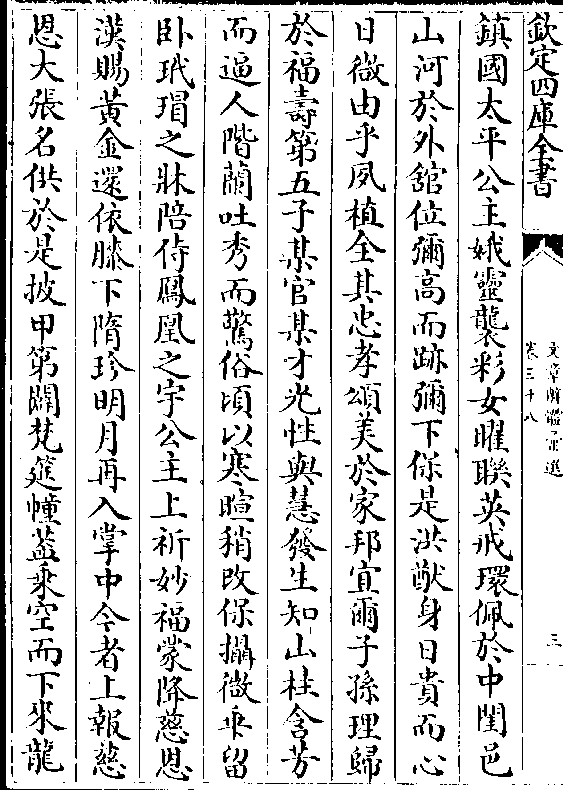 欽定四庫全書
文章辨體彙選
卷三十八
三
鎮國太平公主娥靈襲彩女曜聯英戒環佩於中閨邑
山河於外舘位彌高而跡彌下保是洪猷身日貴而心
日微由乎夙植全其忠孝頌美於家邦宜爾子孫理歸
於福壽第五子某官某才光性與慧發生知山桂含芳
而逼人階蘭吐秀而驚俗頃以寒暄稍改保攝微乖留
卧玳瑁之牀陪侍鳳凰之宇公主上祈妙福蒙降慈恩
漢賜黃金還依膝下隋珍明月再入掌中今者上報慈
恩大張名供於是披甲第闢梵筵幢葢乗空而下來龍